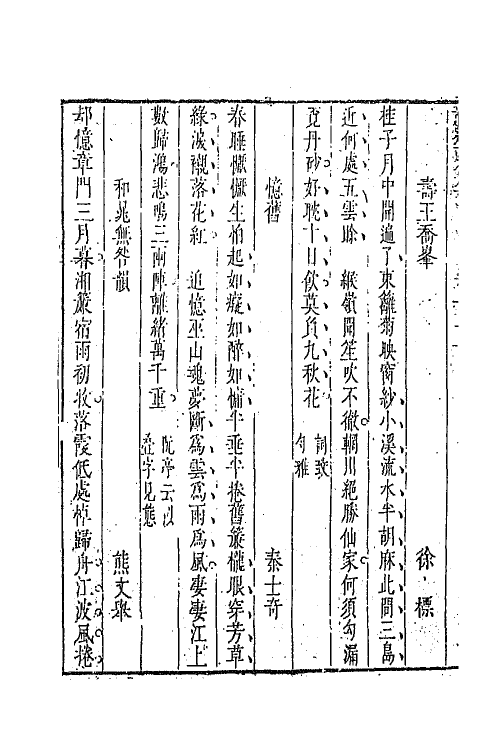 壽王喬峯　徐標
桂子月中開遍了東籬菊映窗紗小溪流水半胡麻此間三島
近何處五雲賒　緱嶺聞笙吹不徹輞川絕勝仙家何須勾漏
覓丹砂好耽十日飲莫負九秋花　詞致勻雅
憶舊　秦士奇
春睡懨懨生怕起如癡如醉如慵半垂半捲舊簾櫳眼穿芳草
綠波襯落花紅　追憶巫山魂夢斷為雲為雨為風淒淒江上
數歸鴻悲鳴三兩陣離緒萬千重　阮亭云以疊字見態
和晁無咎韻　熊文舉
却憶章門三月暮湘簾宿雨初收落霞低處棹歸舟江波風捲